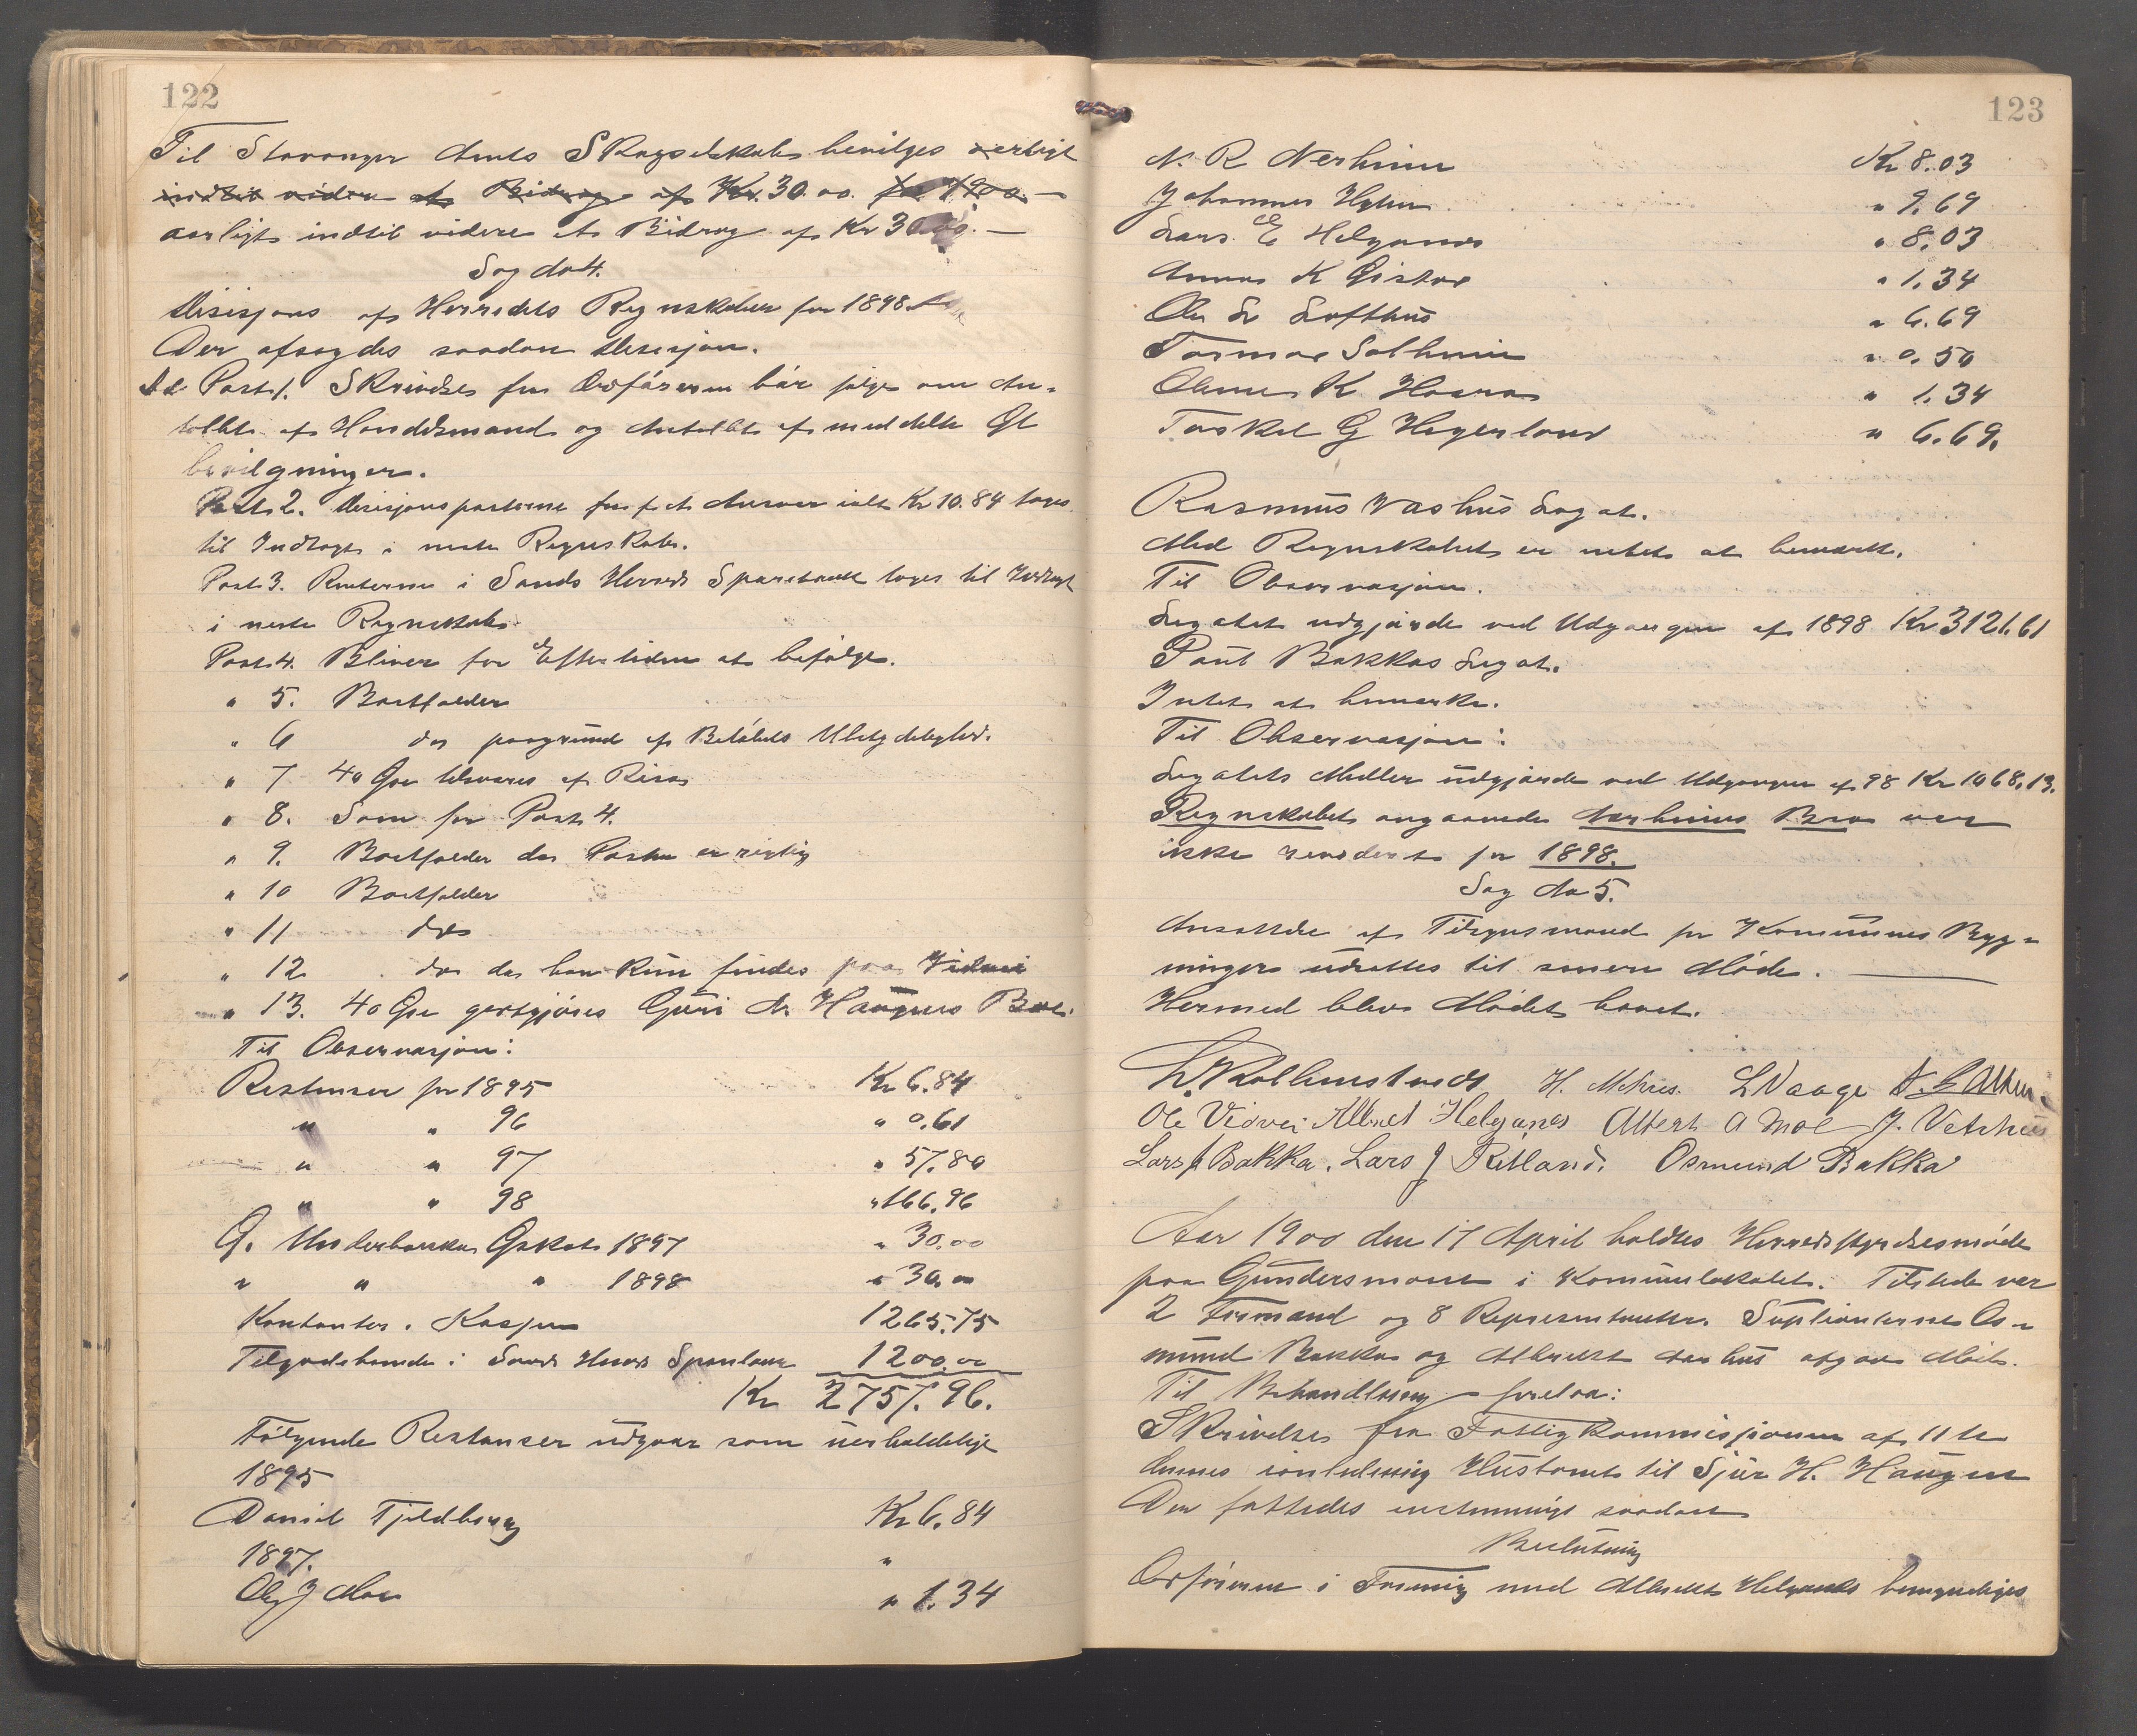 122
Til Stavanger Amts Skogselskab bevilges
indtil videre et Bidrag af Kr. 30.00. for 1900. —
aarligt indtil videre et Bidrag af Kr 30.00. —
Sag No 4.
Desisjons af Herredets Regnskaber for 1898.
Der afsagdes saadan Desisjon.
Ad Post 1. Skrivelse fra Ordføreren bør følge om An-
tallet af Haandsmænd og Antallet af meddelte Øl
bevilgninger.
Post 2. Desisjonsposterne for f. A. Ansvar ialt Kr 10.84 tages
til Indtægt i neste Regnskab.
Post 3. Renterne i Sands Herreds Sparebank tages til Indtægt
i neste Regnskab.
Post 4. Bliver for Eftertiden at befølge.
" 5. Bortfalder
" 6 do paagrund af Beløbets Ubetydelighed.
" 7 40 Øre tilsvares af Risa
" 8. Som for Post 4.
" 9. Bortfalder da Posten er rigtig
" 10 Bortfalder
" 11 do
" 12 do da han kun findes paa Vidvei
" 13. 40 Øre godtgjøres Guri A. Haugens Bo.
Til Observasjon:
Restanser for 1895 Kr 6.84
" " 96 " 0.61
" " 97 " 57.80
" " 98 " 166.96
G. Underbakka Øskat 1897 " 30.00
" " " 1898 " 30.00
Kontanter i Kassen 1265.75
Tilgodehavende i Sands Herreds Sparebank 1200.00
Kr 2757.96.
Følgende Restanser udgaar som uerholdelige
1895
Daniel Fjeldberg Kr 6.84
1897. "
Ole J Moe " 1.34
123
N. R Nerheim Kr 8.03
Johannes Hylen " 9.69
Lars E Helganes " 8.03
" 1.34
Ole L Lofthus " 6.69
Tormod Solheim " 0.50
K. " 1.34
Torkel G Hegerland " 6.69.
Rasmus Vashus Legat.
Med Regnskabet er intet at bemærke.
Til Observasjon.
Legatet udgjørde ved Udgangen af 1898 Kr 3121.61
Poul Bakkas Legat.
Intet at bemærke.
Til Observasjon:
Legatets Midler udgjørde ved Udgangen af 98 Kr 1068.13.
Regnskabet angaaende Aarheims Bro var
ikke revideret for 1898.
Sag No 5.
Ansættelse af Tilsynsmænd for Kommunens Byg-
ninger udsattes til senere Møde. —
Hermed blev Mødet hævet.
L Kolbenstvedt H. Mehus. L Vaage
Ole Vidvei Albret Helganes Albert A Moe J. Vetrhus
Lars J Bakka. Lars J Ritland. Osmund Bakka
Aar 1900 den 17 April holdtes Herredsstyrelsesmøde
paa Gundersmoen i Kommunelokalet. Tilstede var
2 Formænd og 8 Representanter. Suplianterne Os-
mund Bakka og Albrekt Aarhus afgav Møde.
Til Behandling forelaa:
Skrivelse fra Fattigkommisjonen af 11te
dennes ianledning Hustomt til Sjur H. Haugen
Der fattedes enstemmigt saadan
Beslutning
Ordføreren i Forening med Albrekt Helganes bemyndiges